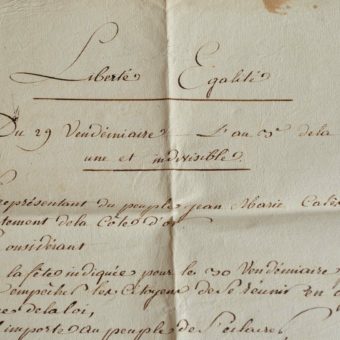 Liberté Egalité
Du 29 Vendémiaire L'an 3e de la
une et indivisible
représentant du peuple Jean Marie Calès
tement de la Côte d'or
Considérant
la fête indiquée pour le 30 Vendémiaire
empêchet les citoyens de se réunir en
de la loi,
importe au peuple de